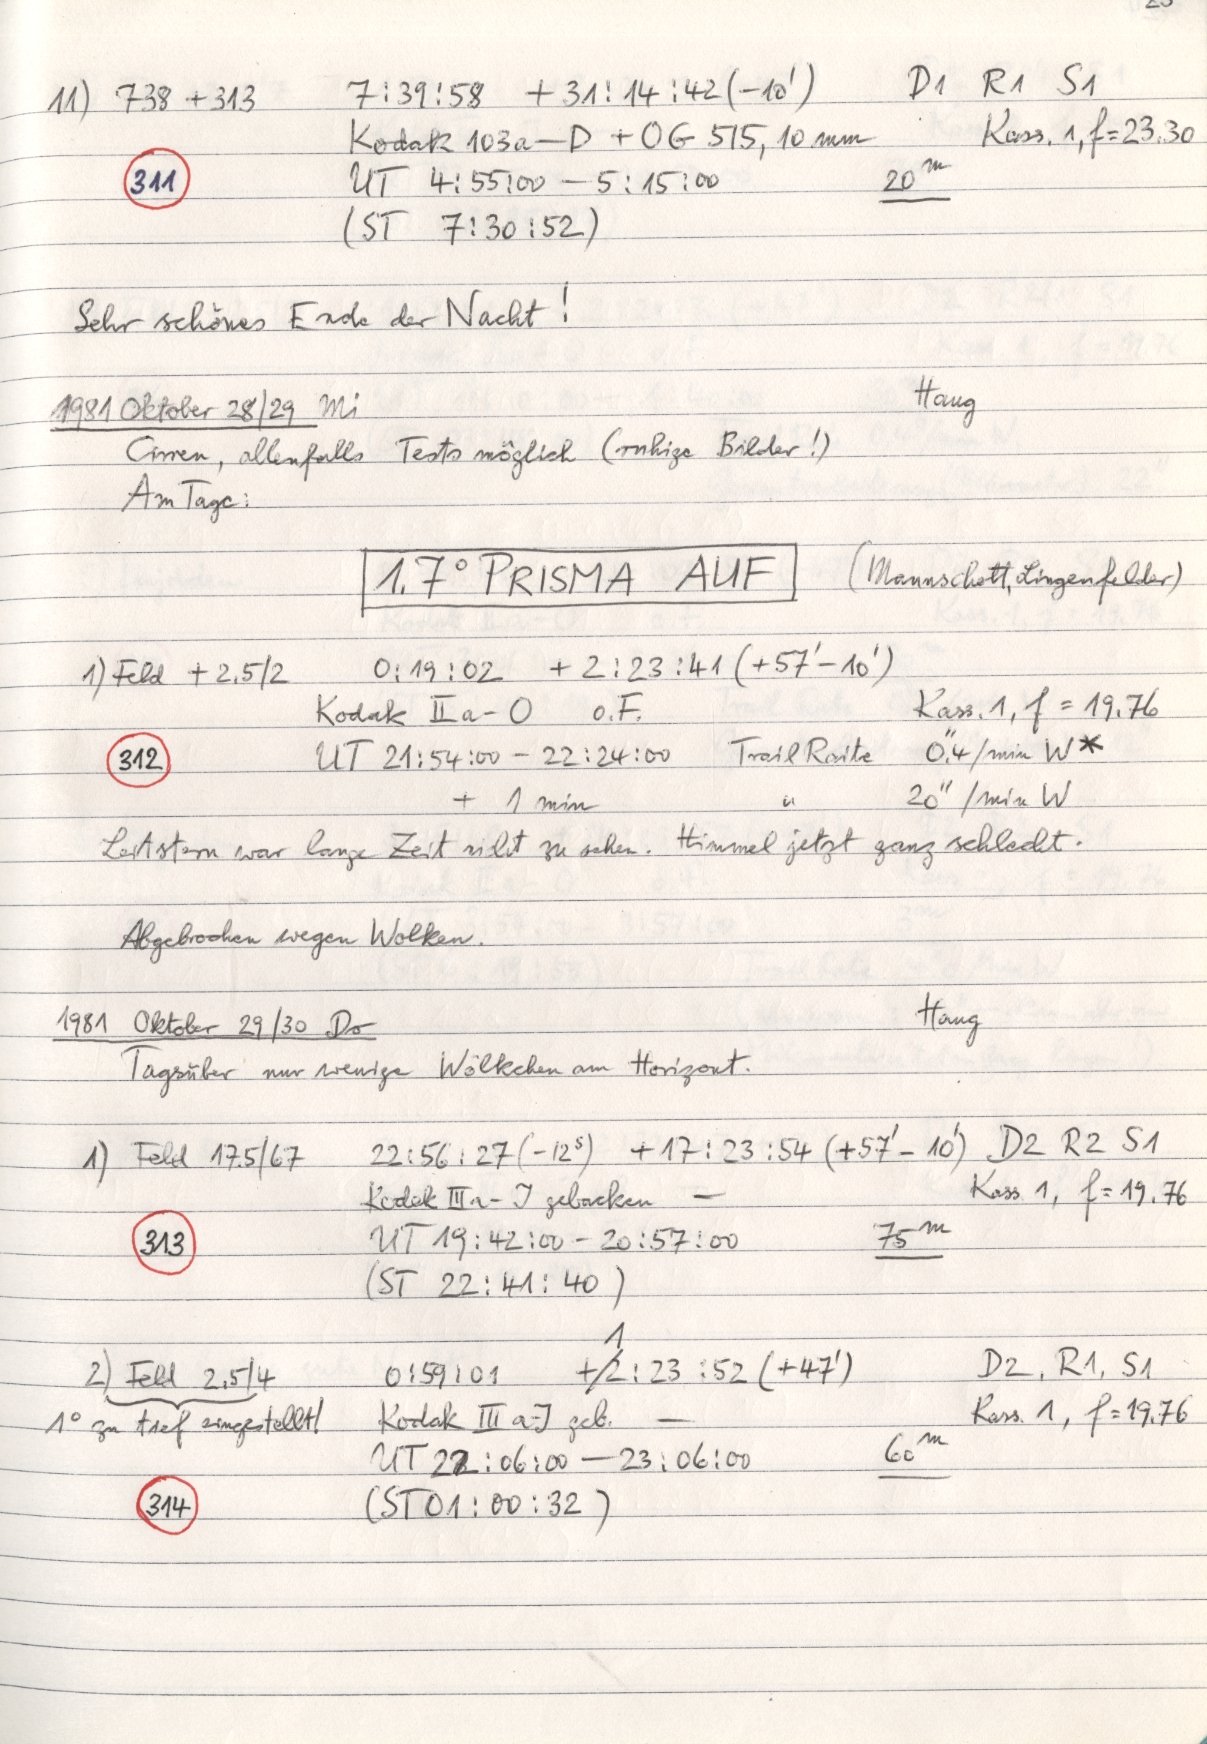 11) 738 + 313 7:39:58 + 31:14:42 (-10') D1 R1 S1
Kodak 103a-D + OG 515, 10 mm Kass. 1, f = 23.30
311 UT 4:55:00 - 5:15:00 20m
(ST 7:30:52)
Sehr schönes Ende der Nacht!
1981 Oktober 28/29 Mi Haug
Cirren, allenfalls Tests möglich (ruhige Bilder!)
Am Tage:
1.7° PRISMA AUF (Mannschott, Lingenfelder)
1) Feld + 2.5/2 0:19:02 + 2:23:41 (+57' - 10')
Kodak IIa-O o.F. Kass. 1, f = 19.76
312 UT 21:54:00 - 22:24:00 Trail Raite 0".4/min W*
+ 1 min " 20"/min W
Leitstern war lange Zeit nicht zu sehen. Himmel jetzt ganz schlecht.
Abgebrochen wegen Wolken.
1981 Oktober 29/30 Do Haug
Tagsüber nur wenige Wölkchen am Horizont.
1) Feld 17.5/67 22:56:27 (-12s) + 17:23:54 (+57' - 10') D2 R2 S1
Kodak IIIa-J gebacken — Kass 1, f = 19.76
313 UT 19:42:00 - 20:57:00 75m
(ST 22:41:40)
2) Feld 2.5/4 0:59:01 + 1:23:52 (+47') D2, R1, S1
1° zu tief eingestellt! Kodak IIIa-J geb. — Kass. 1, f = 19.76
UT 22:06:00 - 23:06:00 60m
314 (ST 01:00:32)